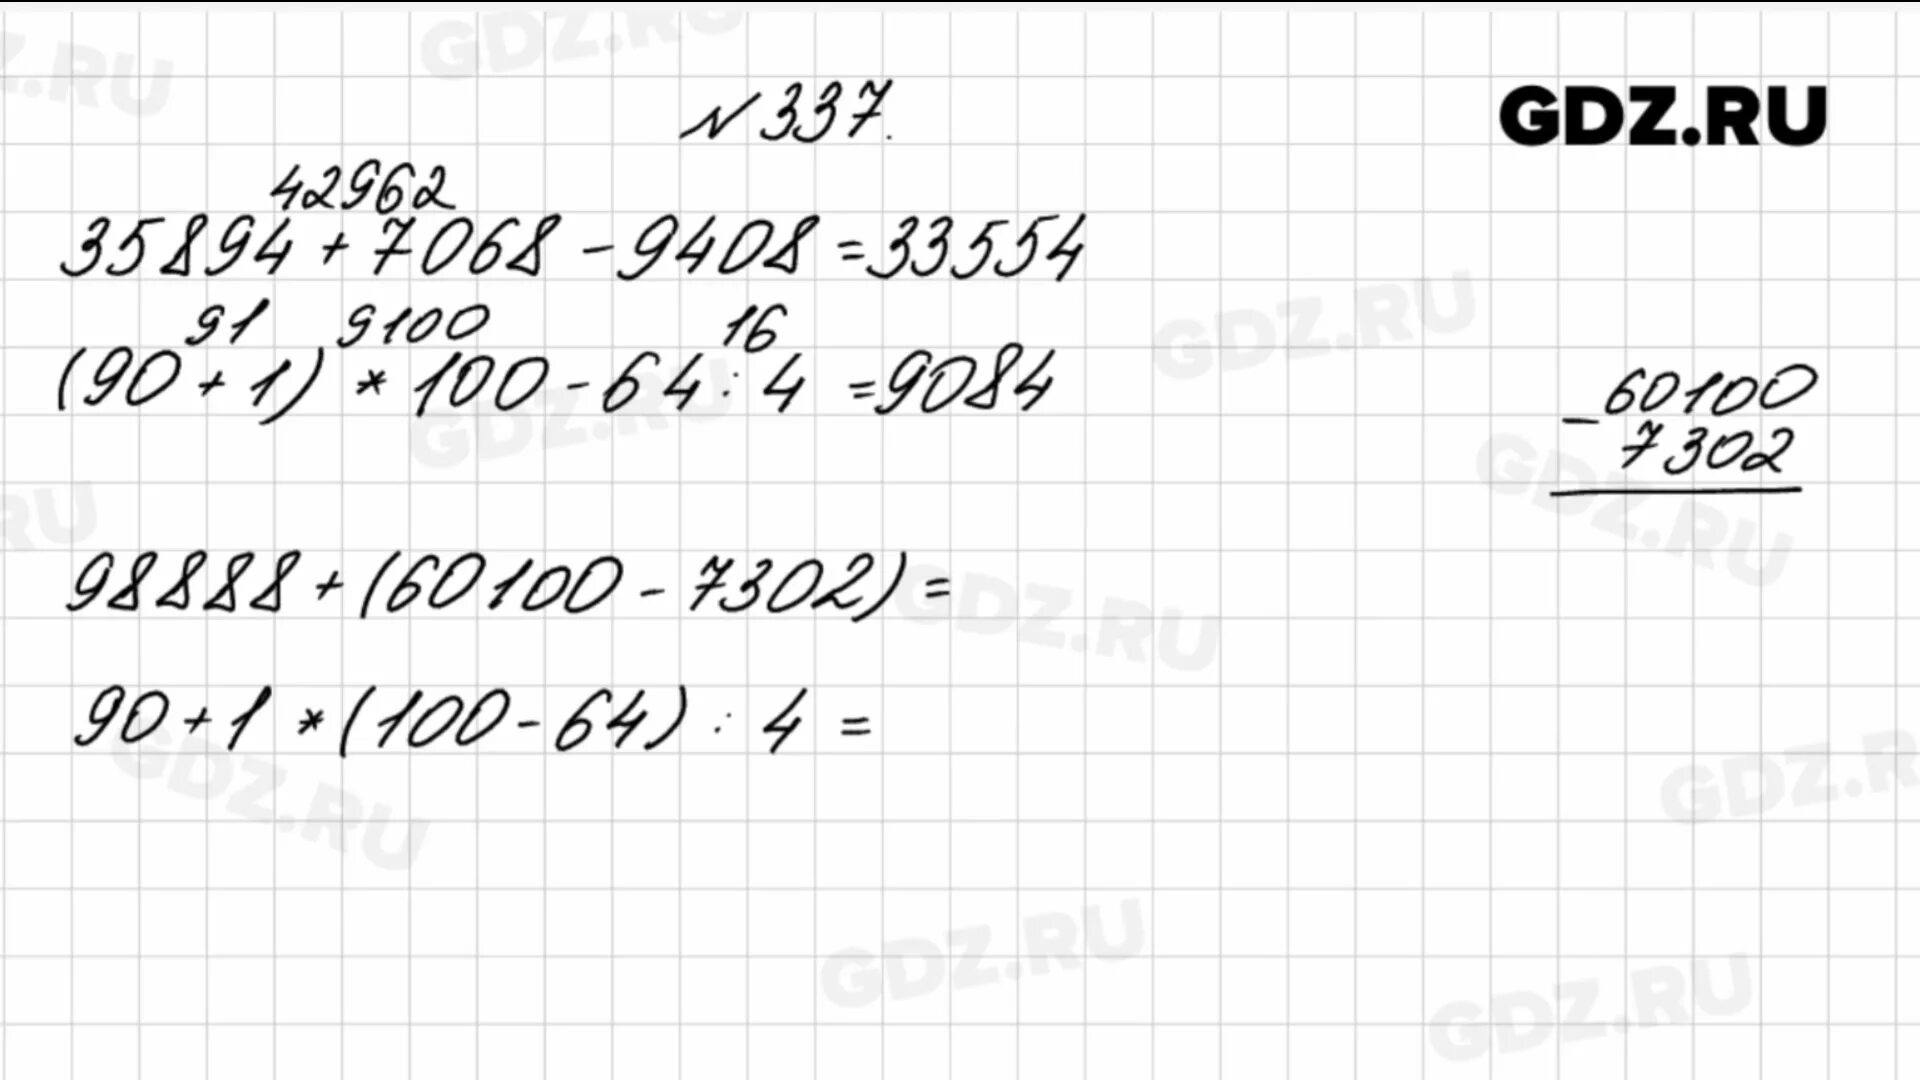 №337.
GDZ.RU
42962
35894 + 7068 - 9408 = 33554
91 9100 16
(90 + 1) * 100 - 64 : 4 = 9084
- 60100
7302
98888 + (60100 - 7302) =
90 + 1 * (100 - 64) : 4 =